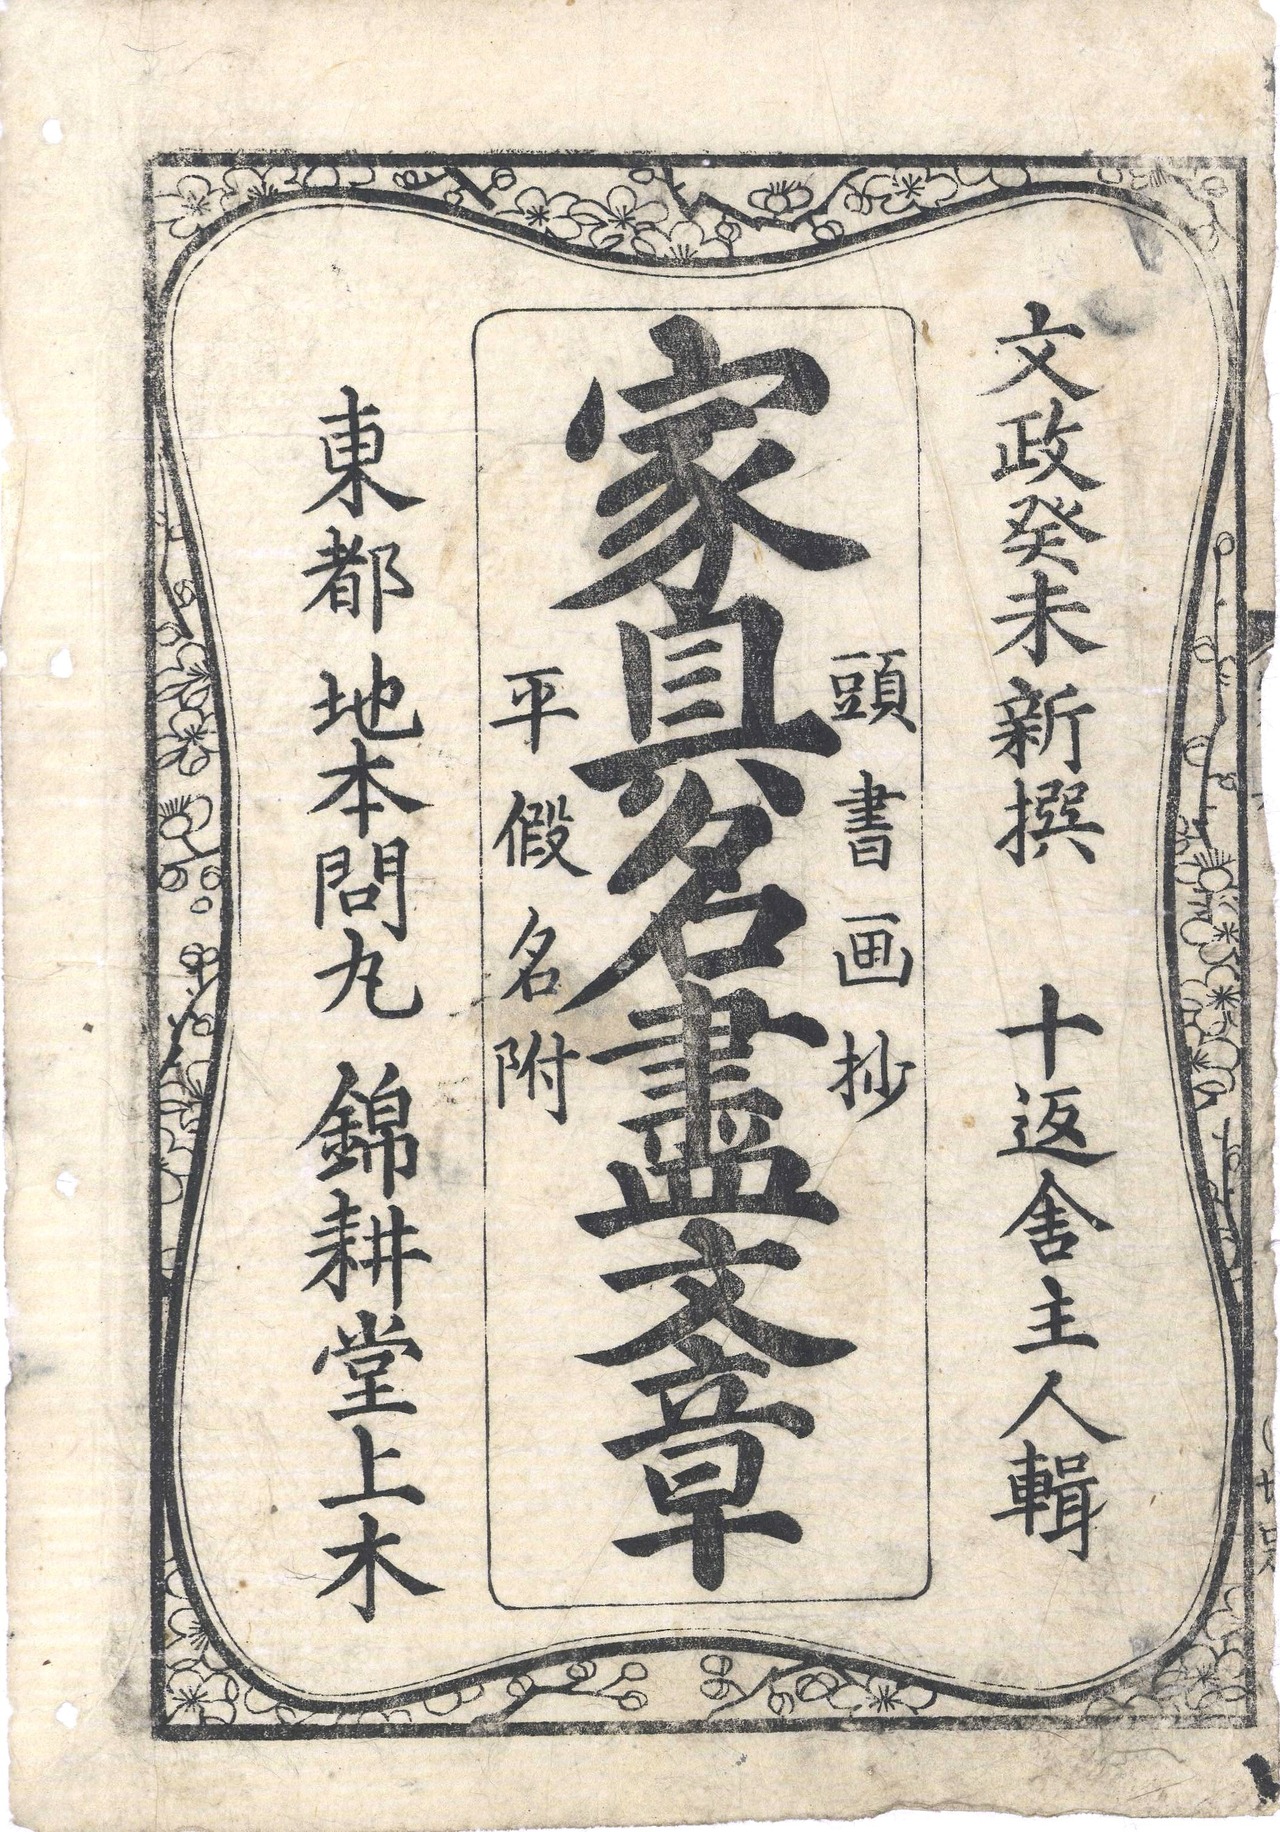 文政癸未新撰 十返舎主人輯
頭書画抄
家具名盡文章
平假名附
東都 地本問丸 錦耕堂上木